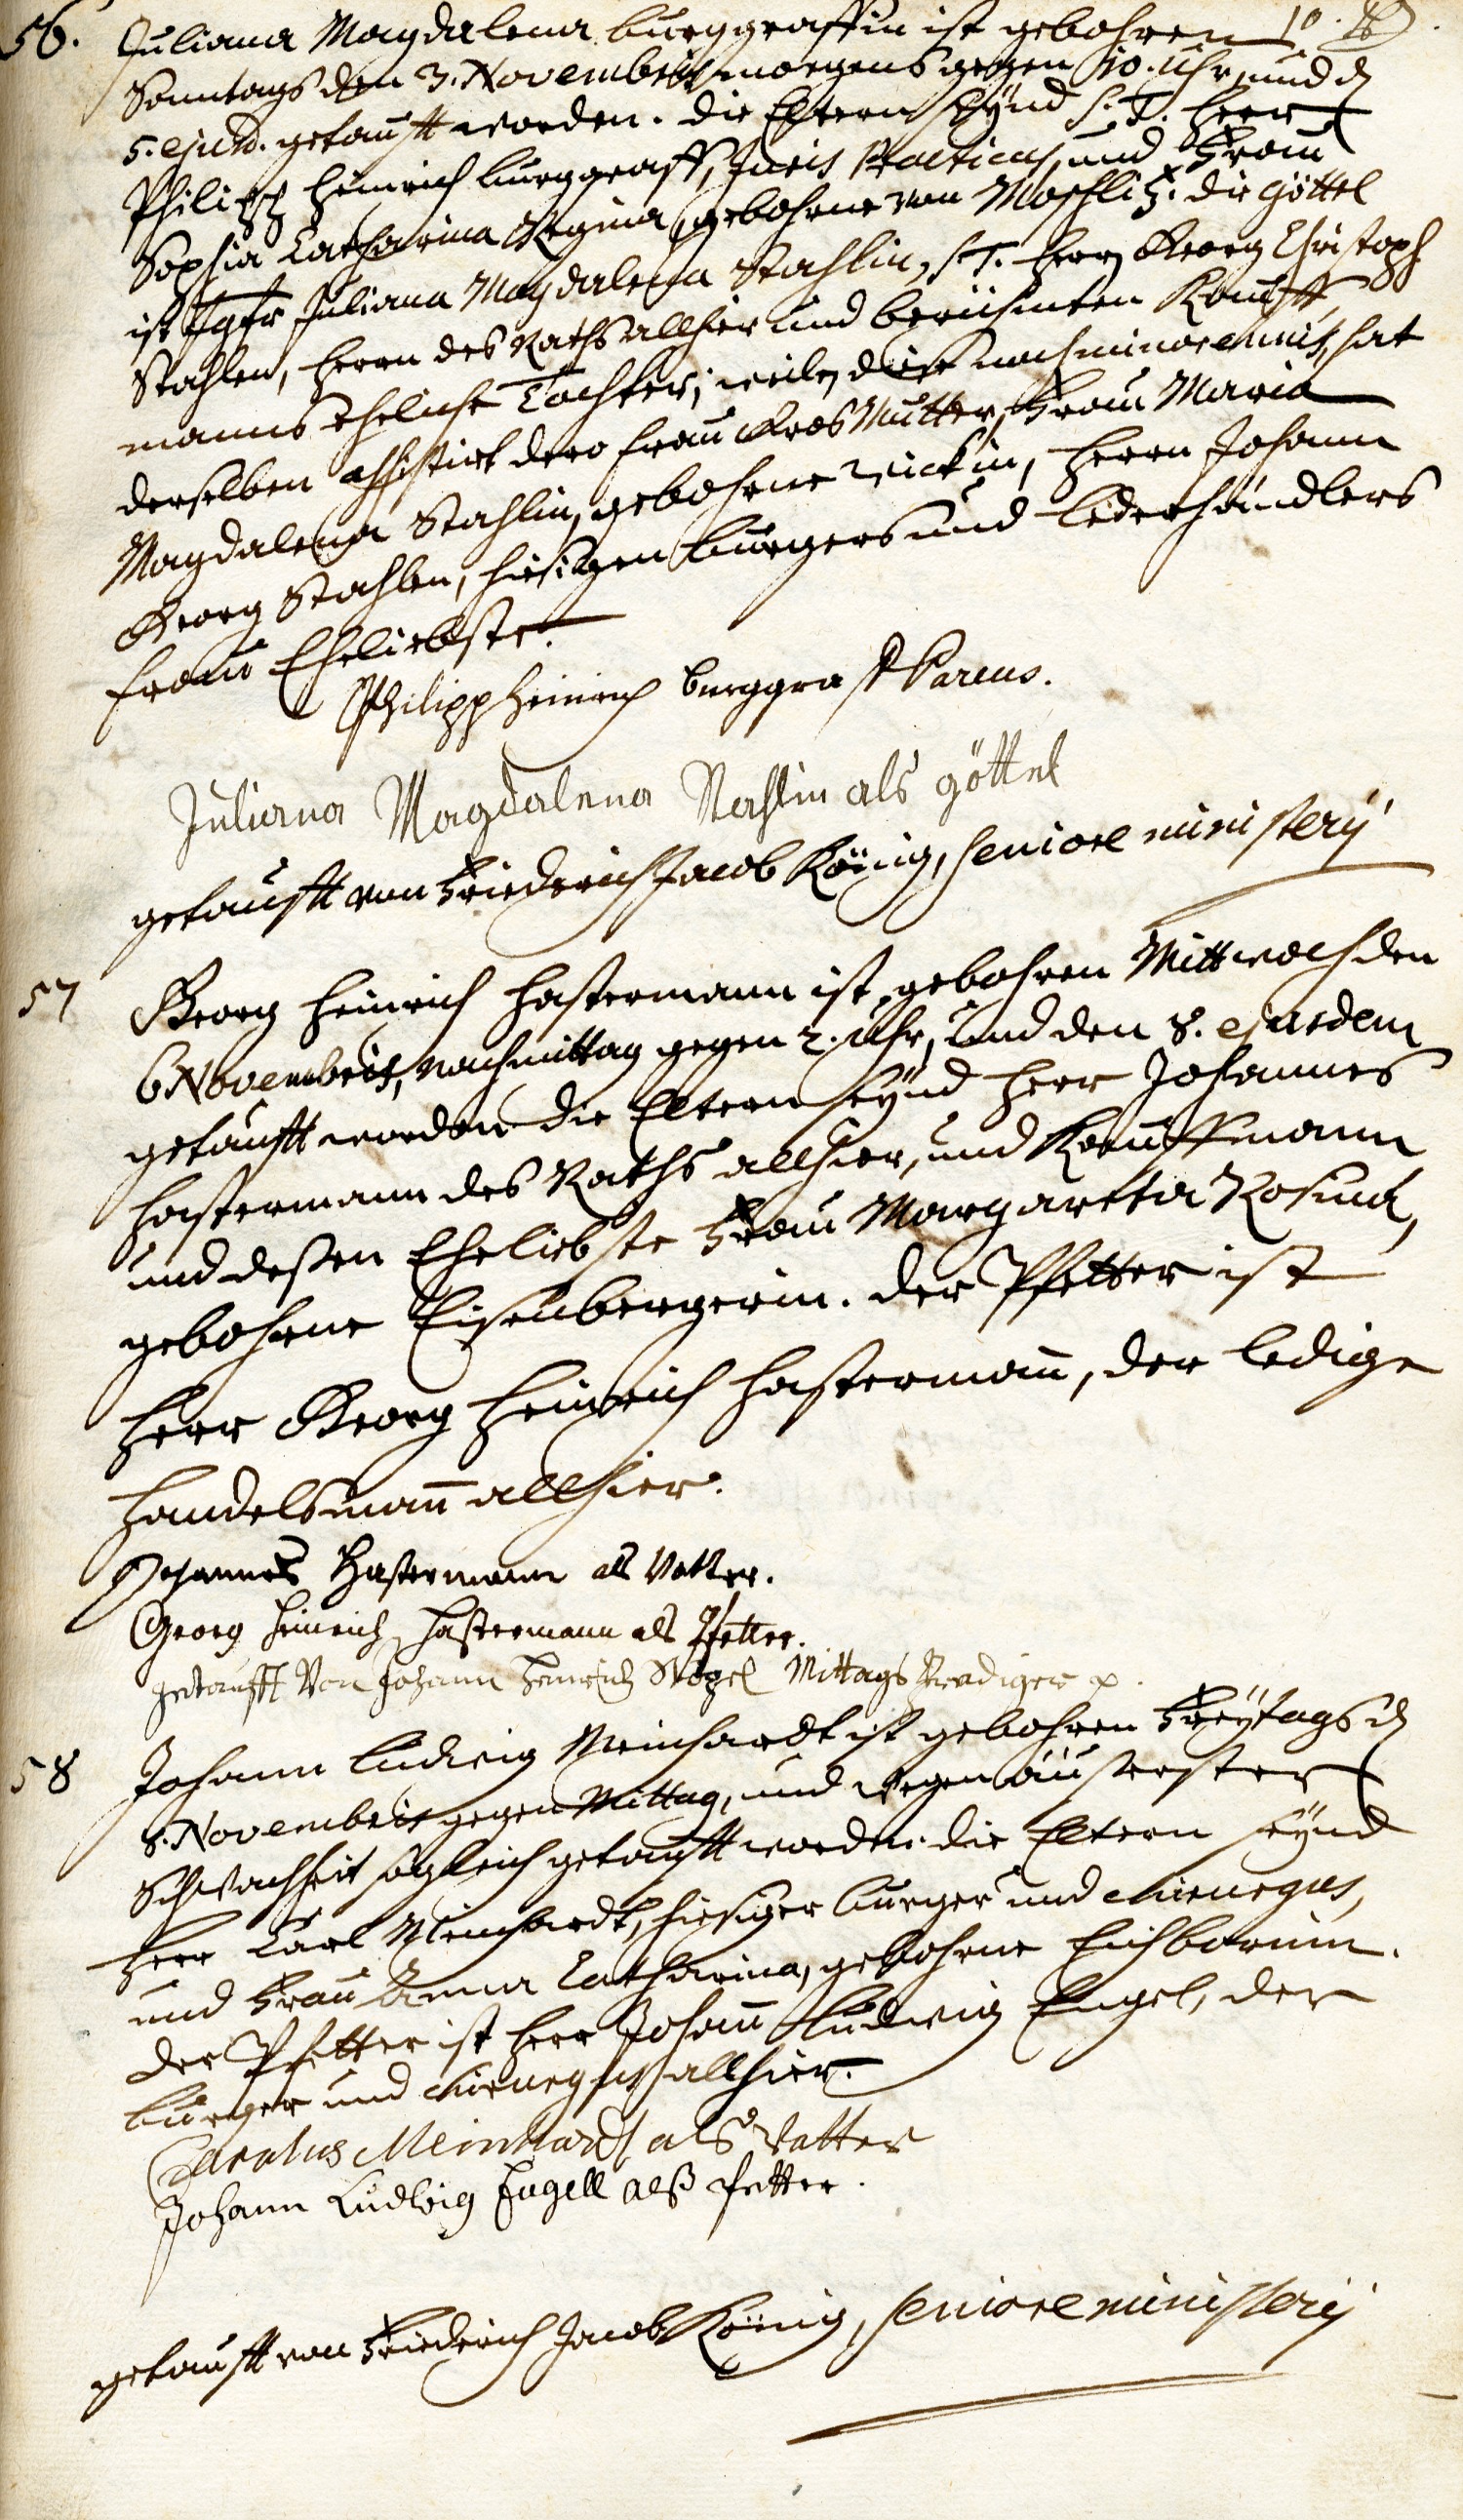 56. Juliana Magdalena Burggraffin ist gebohren
Sonntags den 3. Novembris morgens gegen 10. Uhr, und d
5. ejusd. getaufft worden. Die Eltern seynd S. T. Herr
Philipp Heinrich Burggraff, Juris Practicus, und Frau
Sophia Catharina Regina, gebohrne von Moschlitz. Die Göttel
ist Jgfr Juliana Magdalena Stahlin, S. T. Herrn Georg Christoph
Stahlen, Herrn des Raths allhier und berühmten Kauff
manns eheliche Tochter; weilen diese noch minorennis, hat
derselben assistirt dero Frau Gros Mutter, Frau Maria
Magdalena Stahlin, gebohrne Zickin, Herrn Johann
Georg Stahlen, hiesigen Burgers und Lederhändlers
Frau Eheliebste.
Philipp Heinrich Burggraff Parens.
Juliana Magdalena Stahlin als göttel
getaufft von Friederich Jacob König, seniore ministerij
57 Georg Heinrich Hastermann ist gebohren Mittwoch den
6 Novembris, nachmittag gegen 2. Uhr, und den 8. ejusdem
getaufft worden die Eltern seynd Herr Johannes
Hastermann des Raths allhier, und Kauffmann
und deßen Eheliebste Frau Margaretha Rosina,
gebohrne Eisenbergerin. der Pfetter ist
Herr Georg Heinrich Hastermann, der ledige
Handelsmann allhier.
Johannes Hastermann als Vatter.
Georg Heinrich Hastermann als Pfetter.
getaufft Von Johann Henrich Vogel Mittags Prediger
58 Johann Ludwig Meinhardt ist gebohren Freytags d
8. Novembris gegen Mittag, und wegen äusserster
Schwachheit sogleich getaufft worden. die Eltern seynd
Herr Carl Meinhardt, hiesiger Burger und Chirurgus,
und Frau Anna Catharina, gebohrne Eichbornin.
Der Pfetter ist Herr Johann Ludwig Engel, der
Burger und Chirurgus allhier.
Carolus Meinhardt als Vatter
Johann Ludwig Engell alß Petter.
getaufft von Friederich Jacob König, seniore ministerij